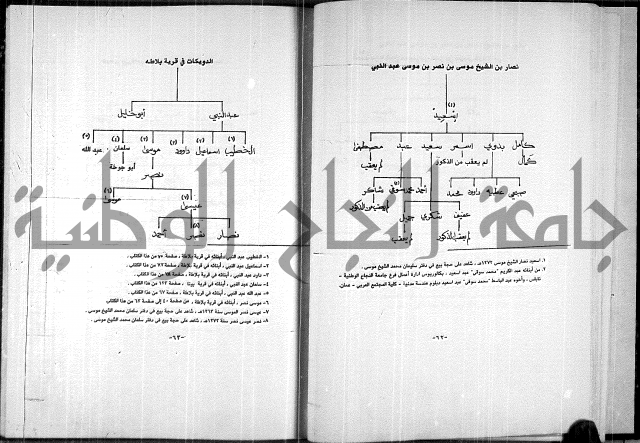 نصار بن الشيخ موسى بن نصر بن موسى عبد النبي
(١)
إسعيد
مصطفى عبد سعيد اسمر بدوي كامل
لم يعقب
لم يعقب من الذكور
كمال
شاكر أحمد محمد شوقي
محمد داود عطيه صبحي
لم يعقب من الذكور
جميل شكري عفيف
لم يعقب
لم يعقب الذكور
١- اسعيد نصار الشيخ موسى ١٢٧٦هـ، شاهد على حجة بيع في دفتر سليمان محمد الشيخ موسى.
٢- من أبنائه عبد الكريم "محمد سوقي" عبد اسعيد، بكالوريوس ادارة أعمال فرع جامعة النجاح الوطنية -
نابلس، وأخوه عبد الباسط "محمد سوقي" عبد اسعيد دبلوم هندسة مدنية - كلية المجتمع العربي - عمان.
-٦٢-
الدويكات في قرية بلاطه
أبو خليل عبد النبي
عبد الله سلمان موسى داود اسماعيل الخطيب
أبو جوخة
نصر
موسى عيسى
أحمد نصر نصار
١- الخطيب عبد النبي، أبنائه في قرية بلاطة، صفحة ٧٠ من هذا الكتاب.
٢- اسماعيل عبد النبي، أبنائه في قرية بلاطة، صفحة ٧٣ من هذا الكتاب.
٣- داود عبد النبي، أبنائه في قرية بلاطة، صفحة ٧٥ من هذا الكتاب.
٤- سلمان عبد النبي، أبنائه في قرية بيتا، صفحة ١٢٣ من هذا الكتاب.
٥- عبد الله عبد النبي، أبنائه في قرية بلاطة، صفحة ٦٧ من هذا الكتاب.
٦- موسى نصر، أبنائه في قرية بلاطة، من صفحة ٤٠ إلى صفحة ٦٢ من هذا الكتاب.
٧- عيسى نصر الموسى سنة ١٢٦٣هـ، شاهد على حجة بيع في دفتر سلمان محمد الشيخ موسى.
٨- نصر عيسى نصر سنة ١٢٧٣هـ، شاهد على حجة بيع في دفتر سلمان محمد الشيخ موسى.
-٦٣-
جامعة النجاح الوطنية